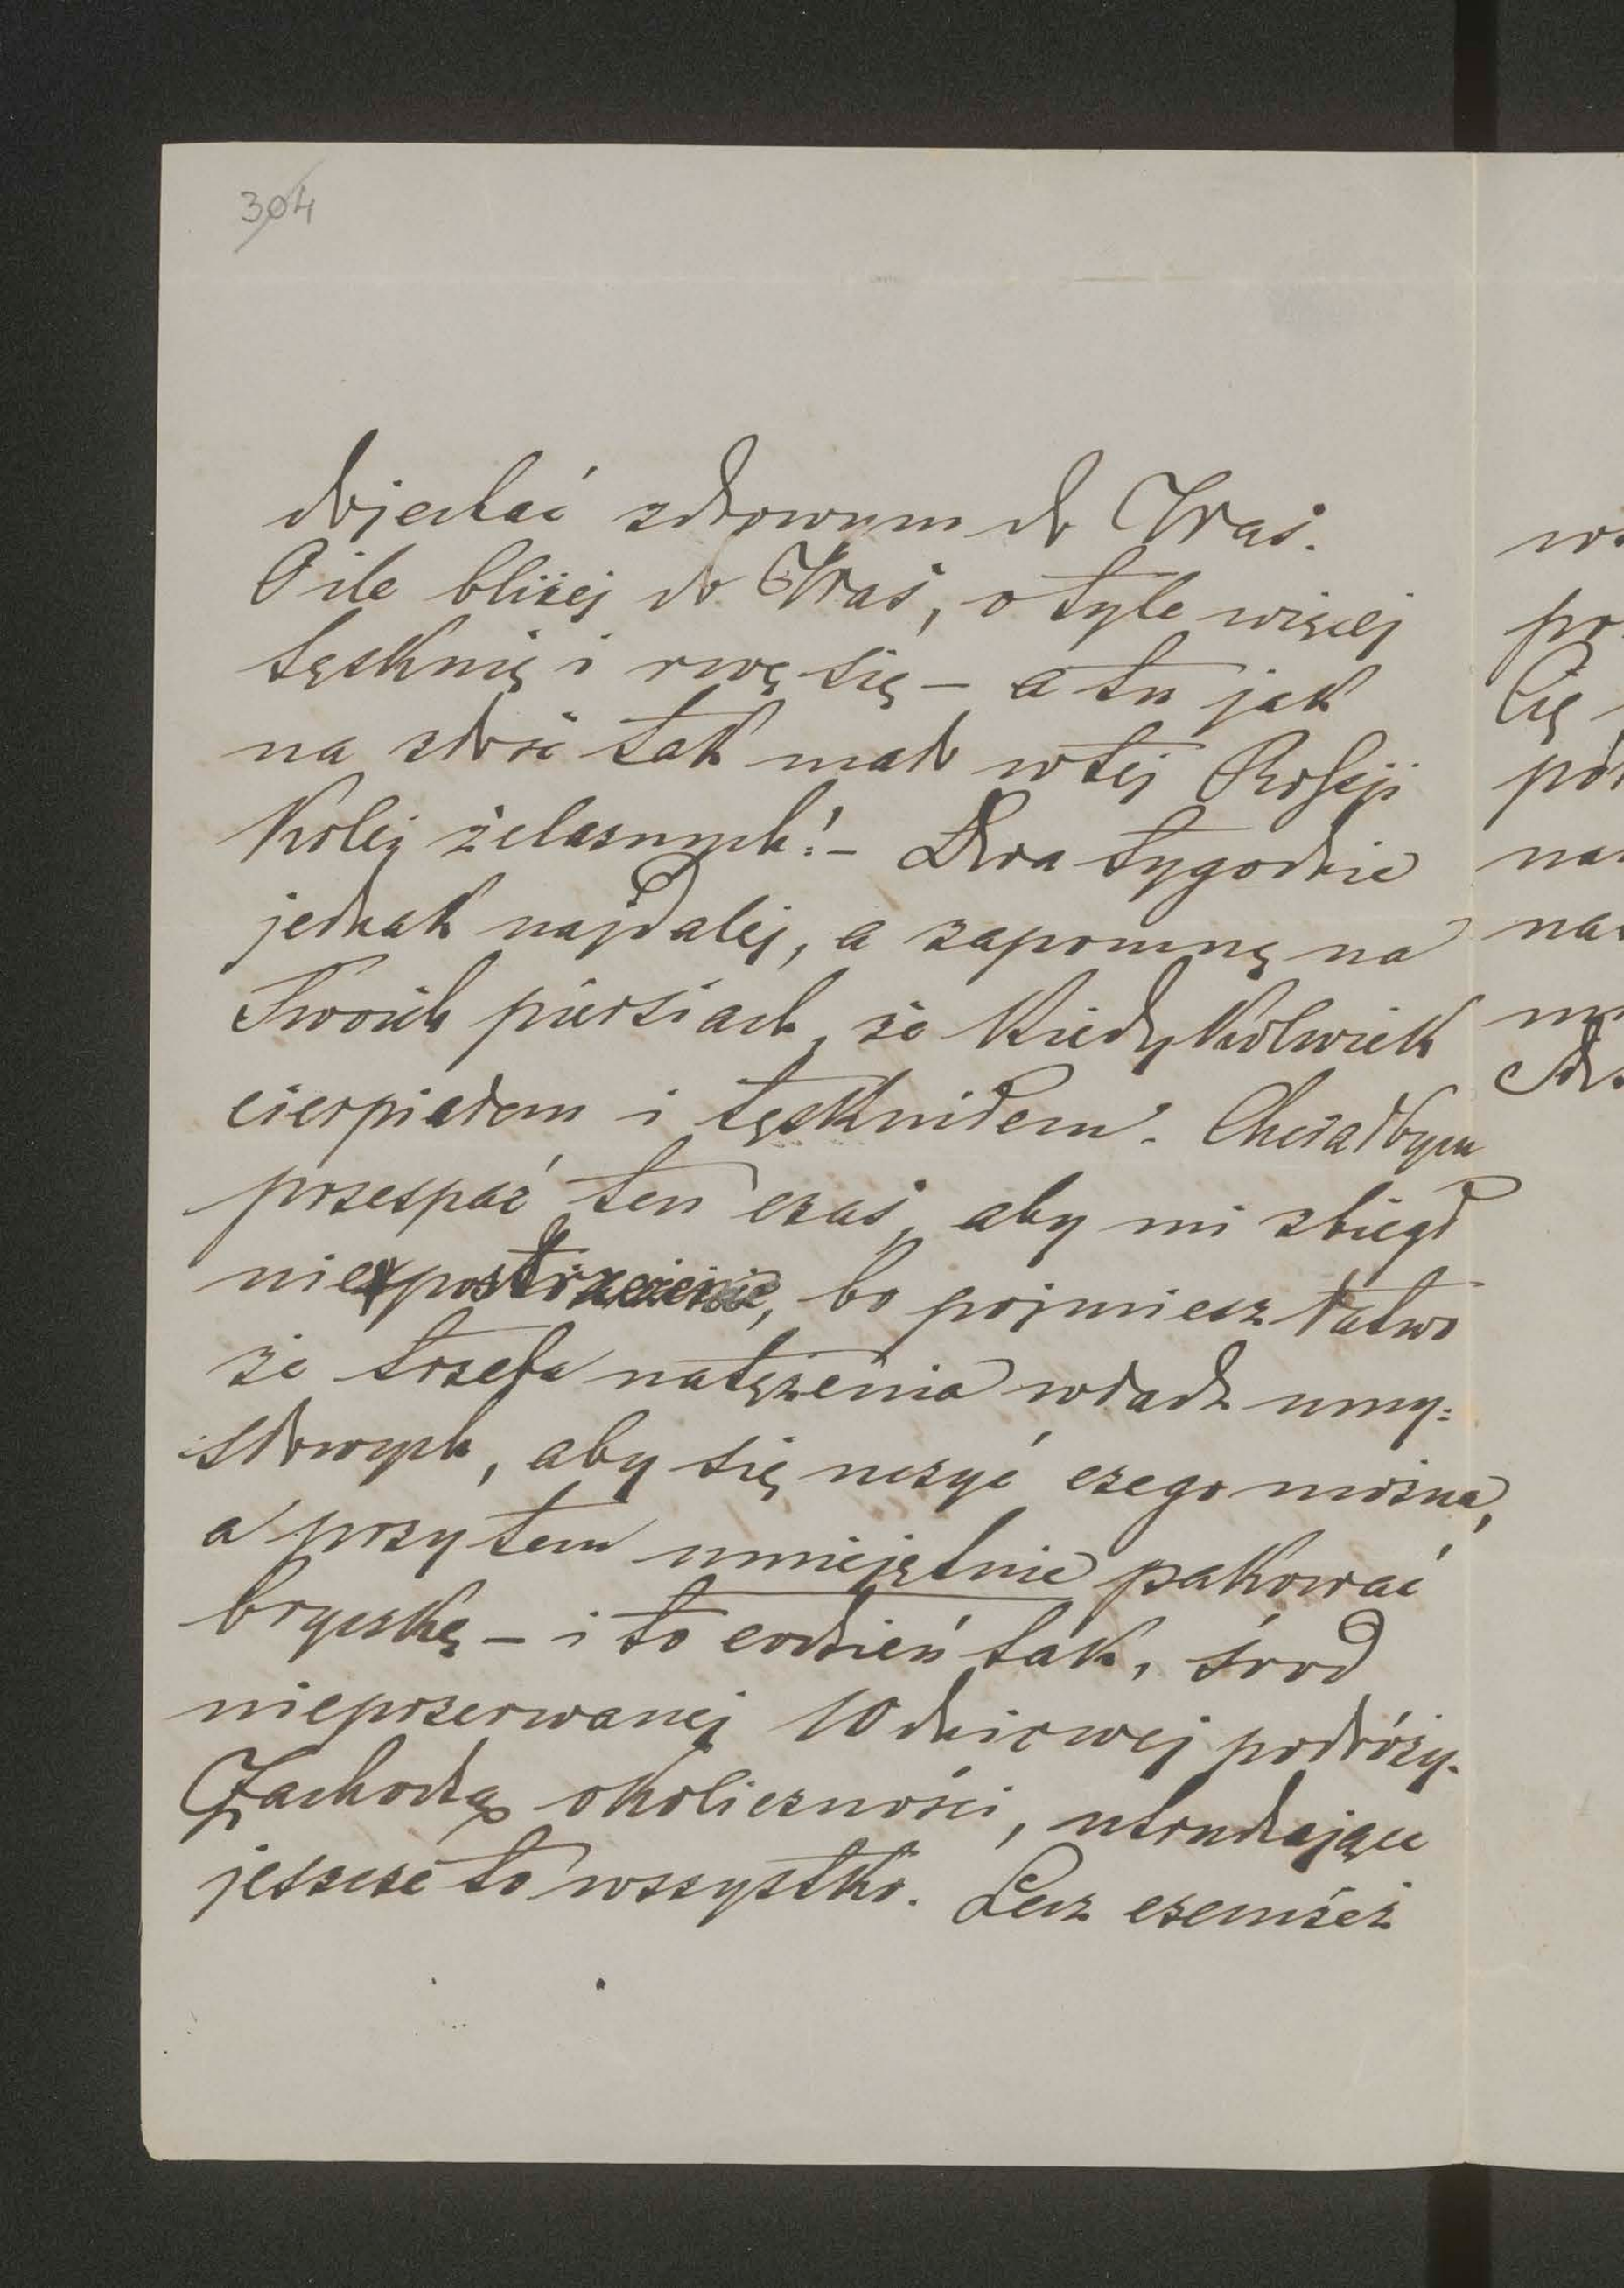 304
dojechać zdrowym do Was.
O ile bliżej do Was, o tyle więcej
tęsknię i rwę się – a tu jak
na złość tak mało w tej Rossji
kolei żelaznych! – Dwa tygodnie
jednak najdalej, a zapomnę na
Twoich piersiach, że kiedykolwiek
cierpiałem i tęskniłem. Chciałbym
przespać ten czas, aby mi zbiegł
niepostrzeżenie, bo pojmiesz łatwo
że trzeba natężenia władz umy=
słowych, aby się uczyć czego można,
a przytem umiejętnie pakować
bryczkę – i to codzień tak, śród
nieprzerwanej 10 dniowej podróży.
Zachodzą okoliczności, utrudzające
jeszcze to wszystko. Lecz czemżeż
Cię